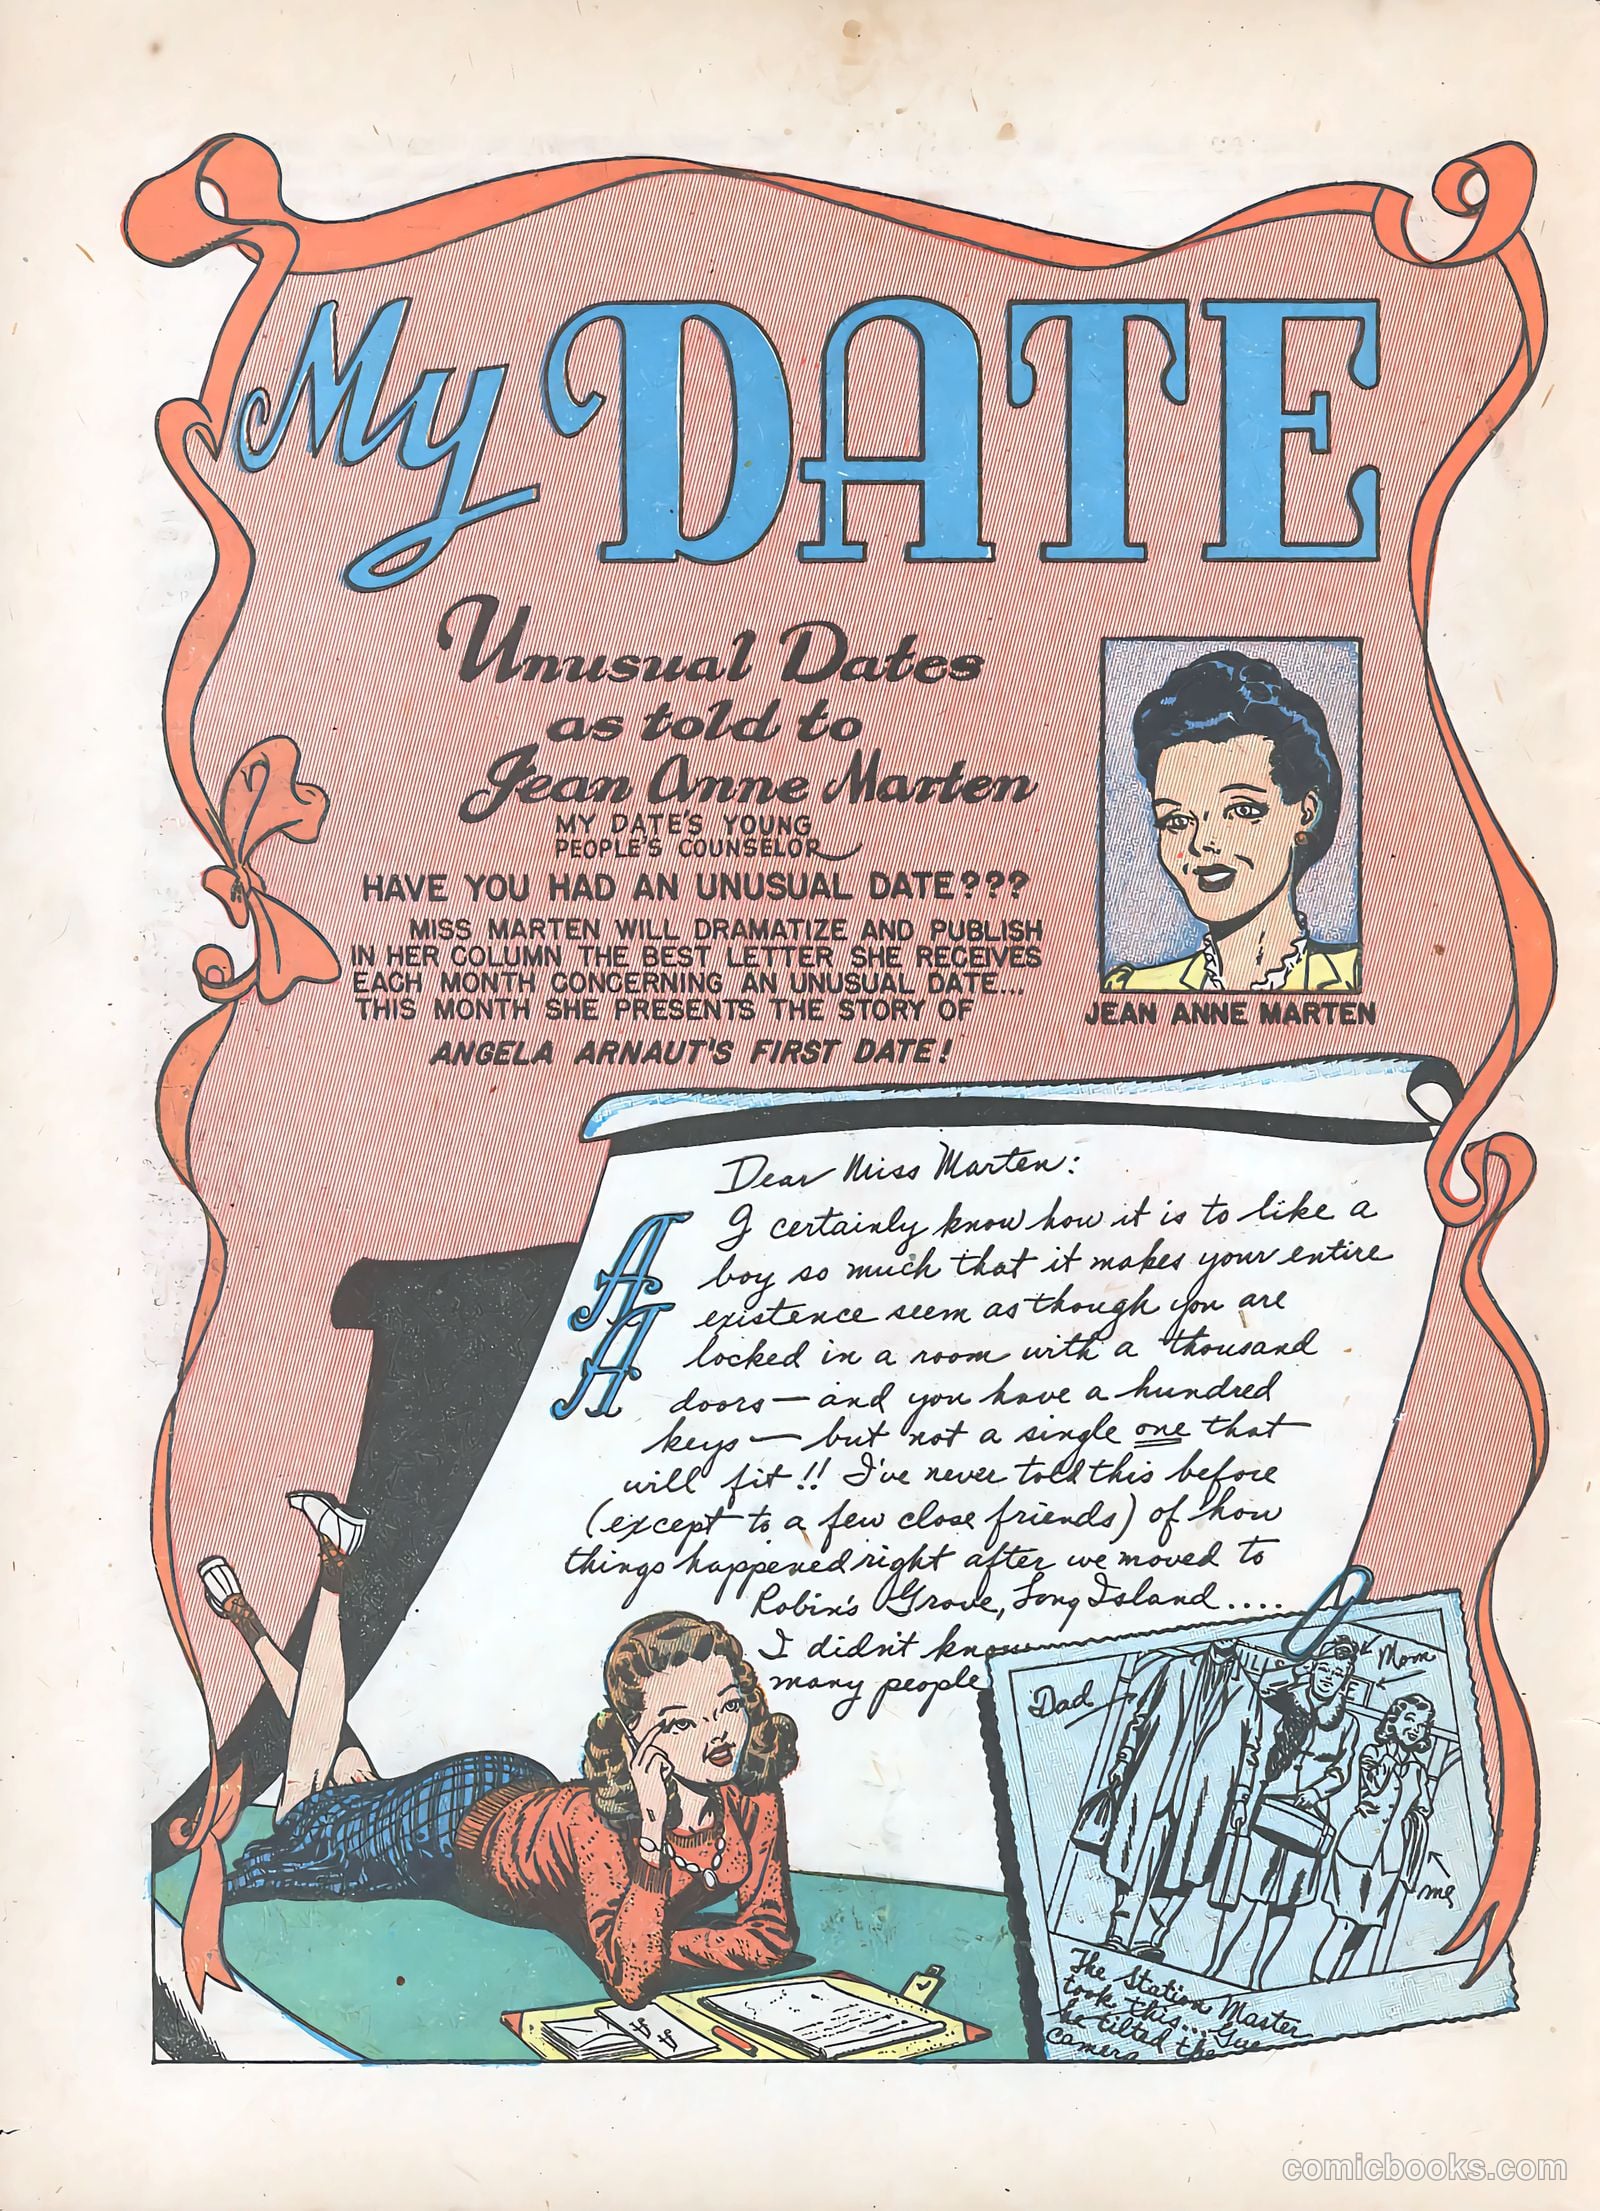 My DATE
Unusual Dates
as told to
Jean Anne Marten
MY DATE'S YOUNG
PEOPLE'S COUNSELOR
HAVE YOU HAD AN UNUSUAL DATE???
MISS MARTEN WILL DRAMATIZE AND PUBLISH
IN HER COLUMN THE BEST LETTER SHE RECEIVES
EACH MONTH CONCERNING AN UNUSUAL DATE...
THIS MONTH SHE PRESENTS THE STORY OF
ANGELA ARNAUT'S FIRST DATE!
JEAN ANNE MARTEN
A
A
Dear Miss Marten:
I certainly know how it is to like a
boy so much that it makes your entire
existence seem as though you are
locked in a room with a thousand
doors — and you have a hundred
keys — but not a single one that
will fit!! I've never told this before
(except to a few close friends) of how
things happened right after we moved to
Robin's Grove, Long Island....
I didn't know
many people
Dad
Mom
me
The Station Master
took this... Guess
he tilted the
camera
AA
comicbooks.com